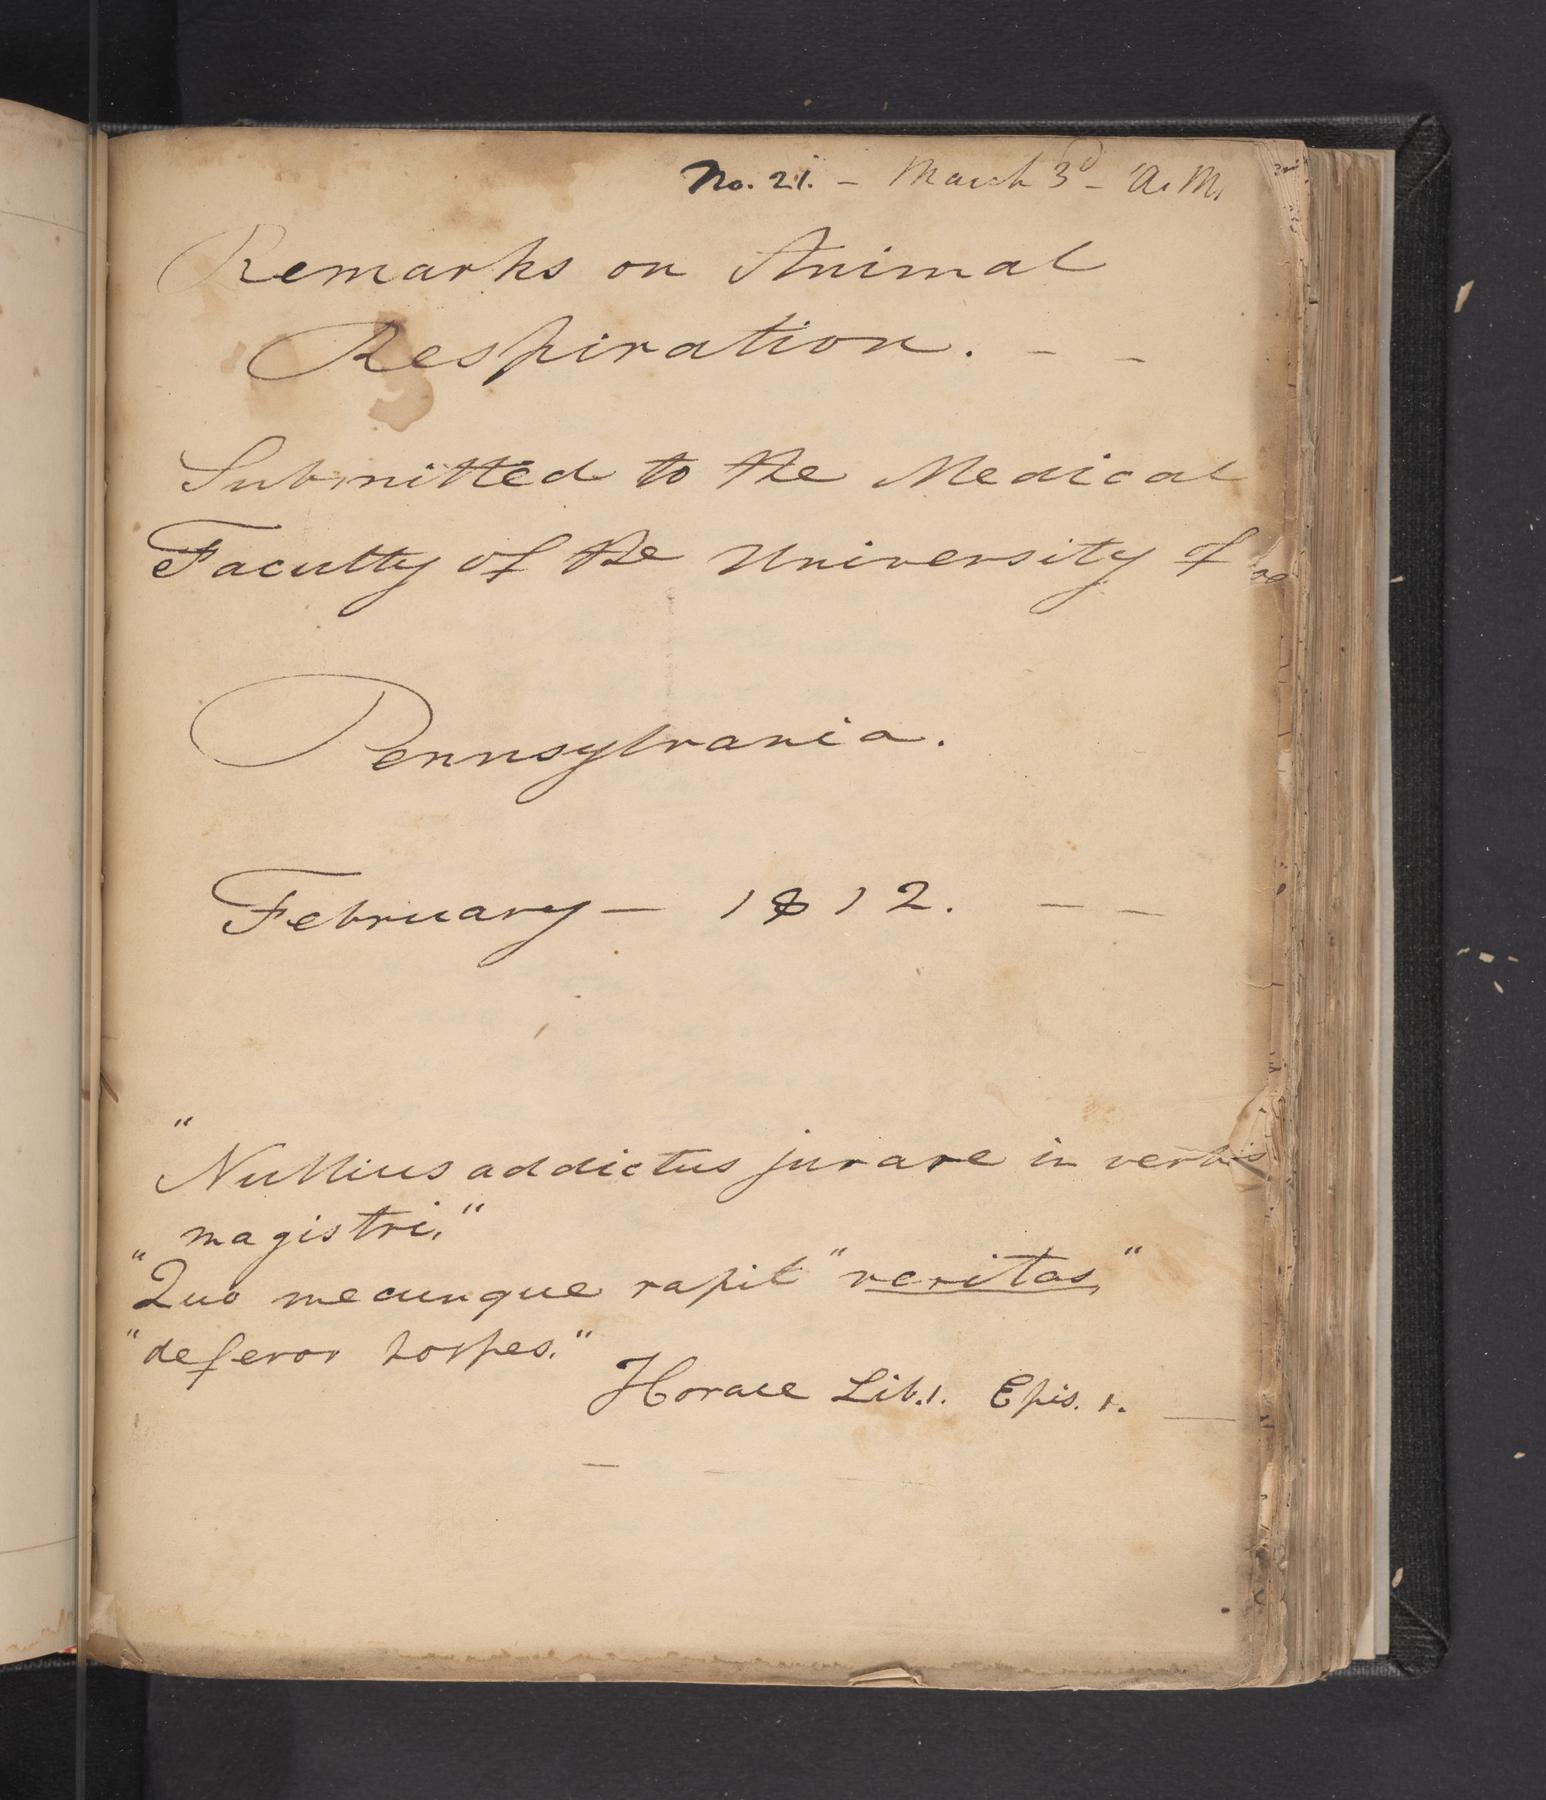 No. 21. - March 3d - A. M.
Remarks on Animal
Respiration. - -
Submitted to the Medical
Faculty of the University of
Pennsylvania.
February - 1812. - -
"Nullius addictus jurare in verbis
magistri."
"Quo mecunque rapit "veritas,"
"deferor hospes."
Horace Lib. 1. Epis. 1. -